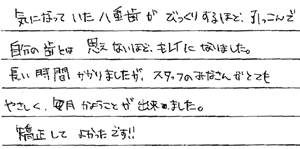 気になっていた八重歯がびっくりするほど、引っこんで
自分の歯とは思えないほど、キレイになりました。
長い時間かかりましたが、スタッフのみなさんがとても
やさしく、毎月かようことが出来ました。
矯正してよかったです!!